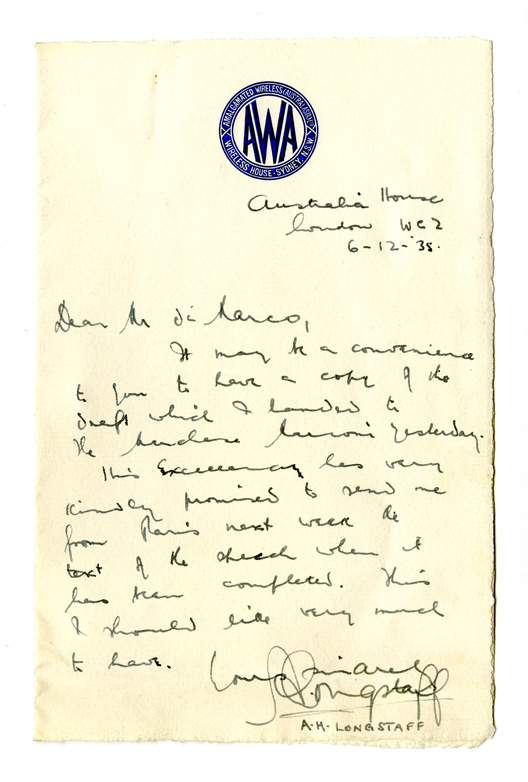 AMALGAMATED WIRELESS (AUSTRALASIA) LTD
AWA
WIRELESS HOUSE - SYDNEY, N.S.W.
Australia House
London WC2
6-12-'35.
Dear Mr di Marco,
It may be a convenience
to you to have a copy of the
draft which I handed to
the Marchese Marconi yesterday.
His Excellency has very
kindly promised to send me
from Paris next week the
text of the speech when it
has been completed. This
I should like very much
to have.
Yours sincerely
A.H. Longstaff
A.H. LONGSTAFF